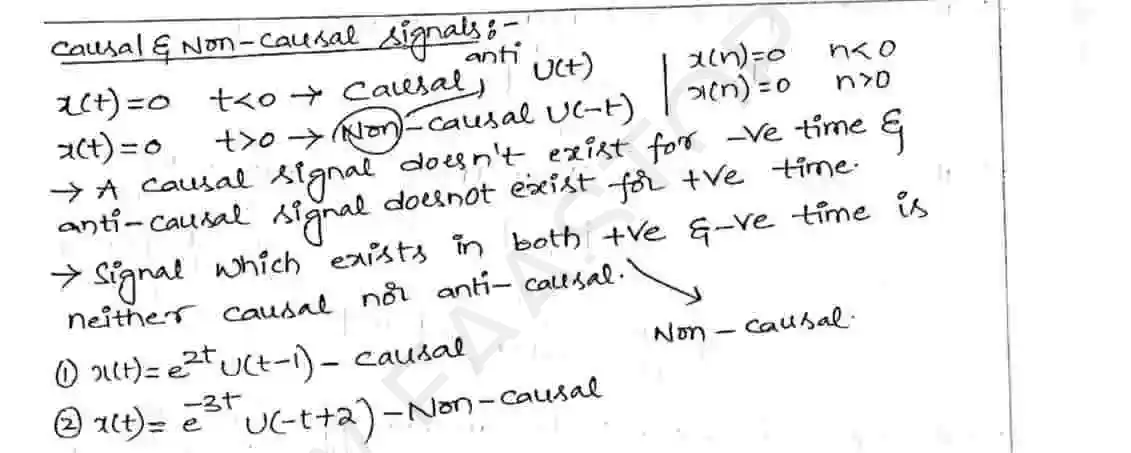 Causal & Non-causal signals:-
x(t)=0 t<0 → Causal, U(t) | x(n)=0 n<0
anti
x(t)=0 t>0 → Non-causal U(-t) | x(n)=0 n>0
→ A causal signal doesn't exist for -ve time &
anti-causal signal doesnot exist for +ve time.
→ Signal which exists in both +ve & -ve time is
neither causal nor anti-causal.
Non-causal.
① x(t)= e^2t U(t-1) - causal
② x(t)= e^-3t U(-t+2) - Non-causal